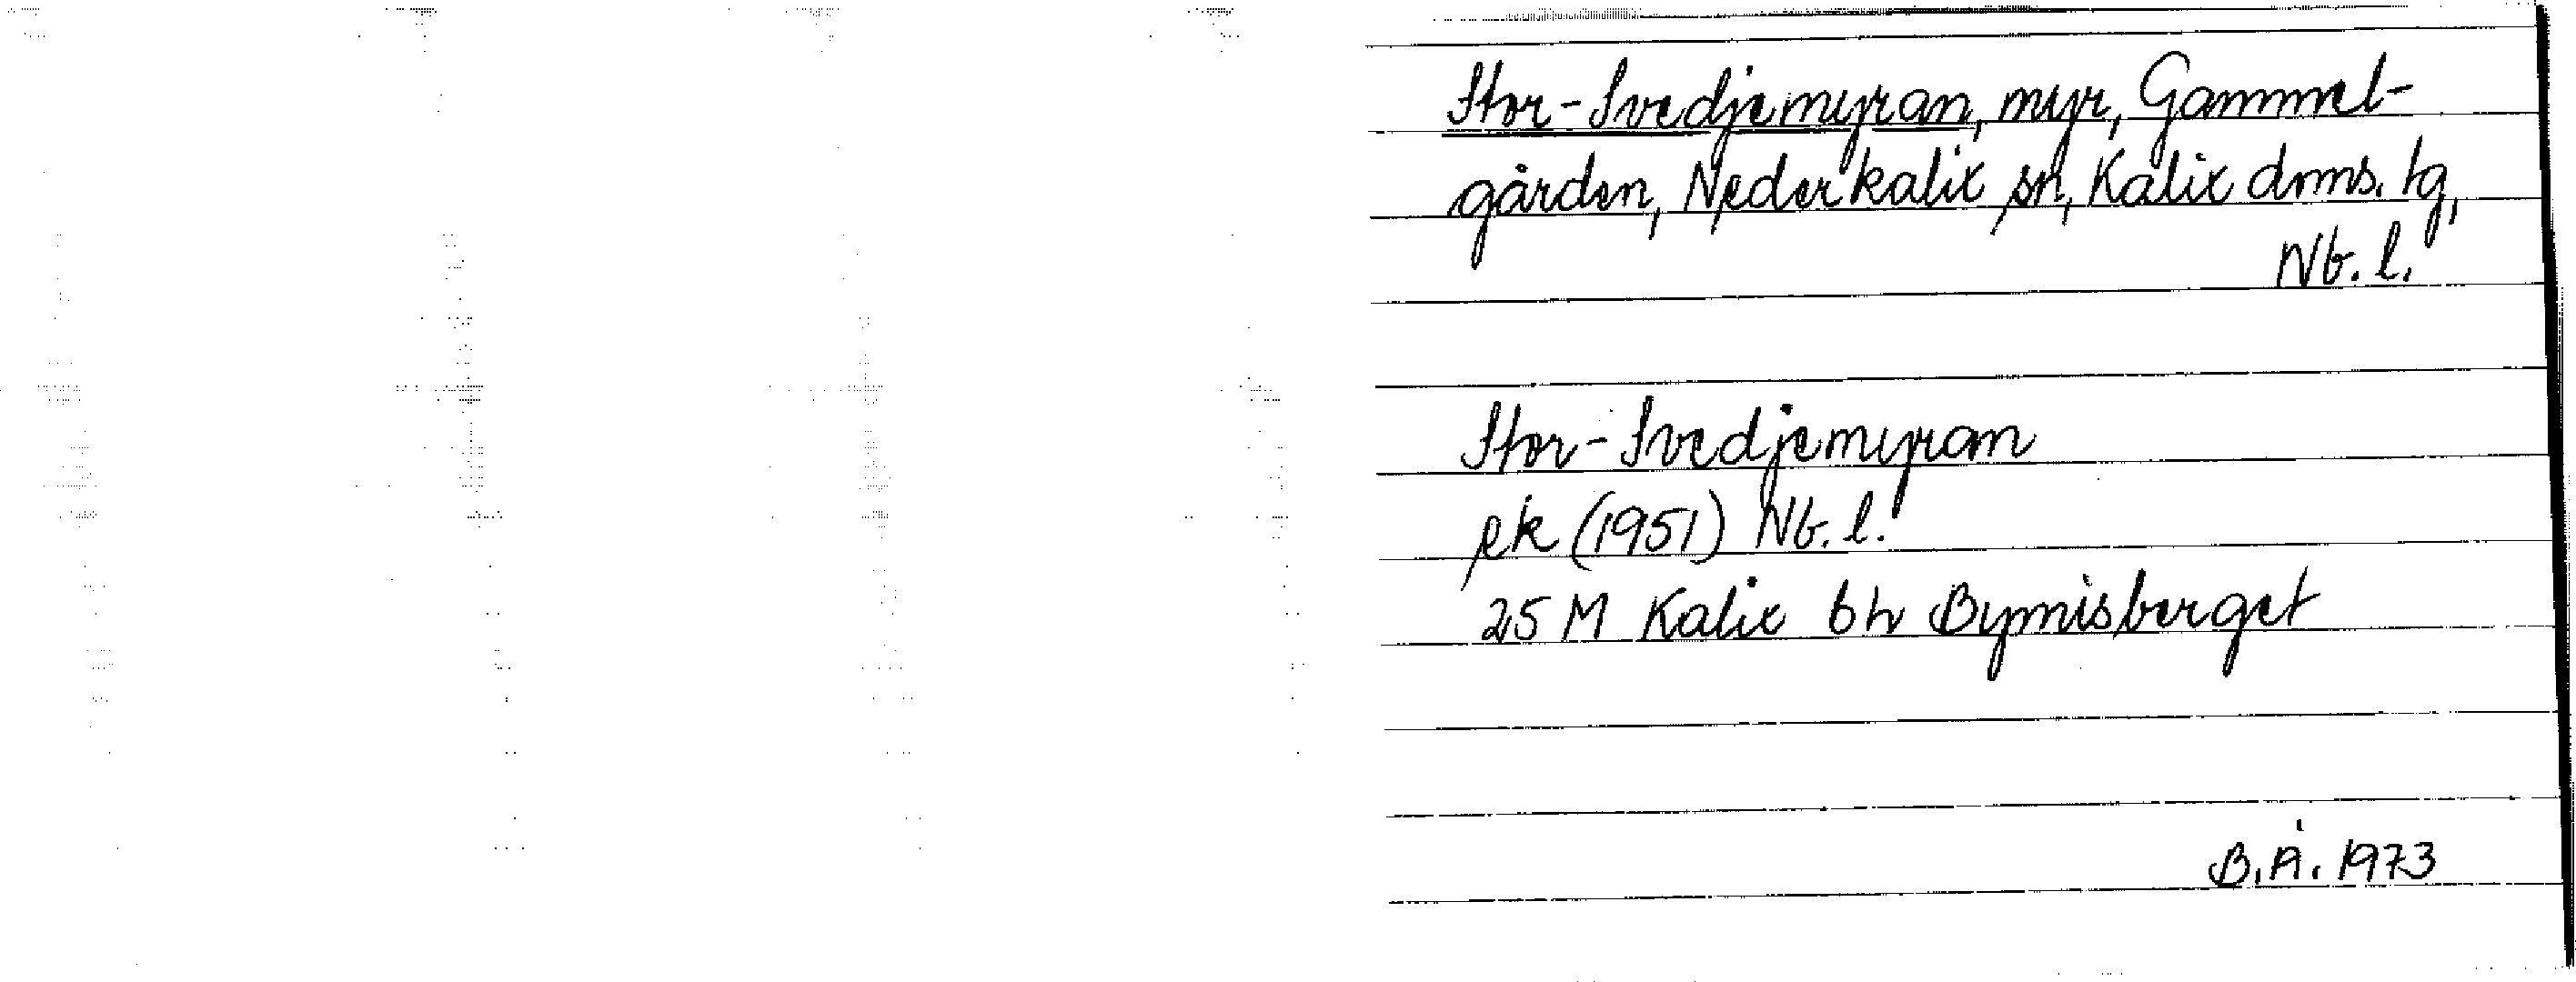 Stor-Svedjemyran, myr, Gammel-
gården, Nederkalix sn, Kalix doms. tg,
Nb. l.
Stor-Svedjemyran
ek (1951) Nb. l.
25 M Kalix 6h Bymisberget
B.Å. 1973